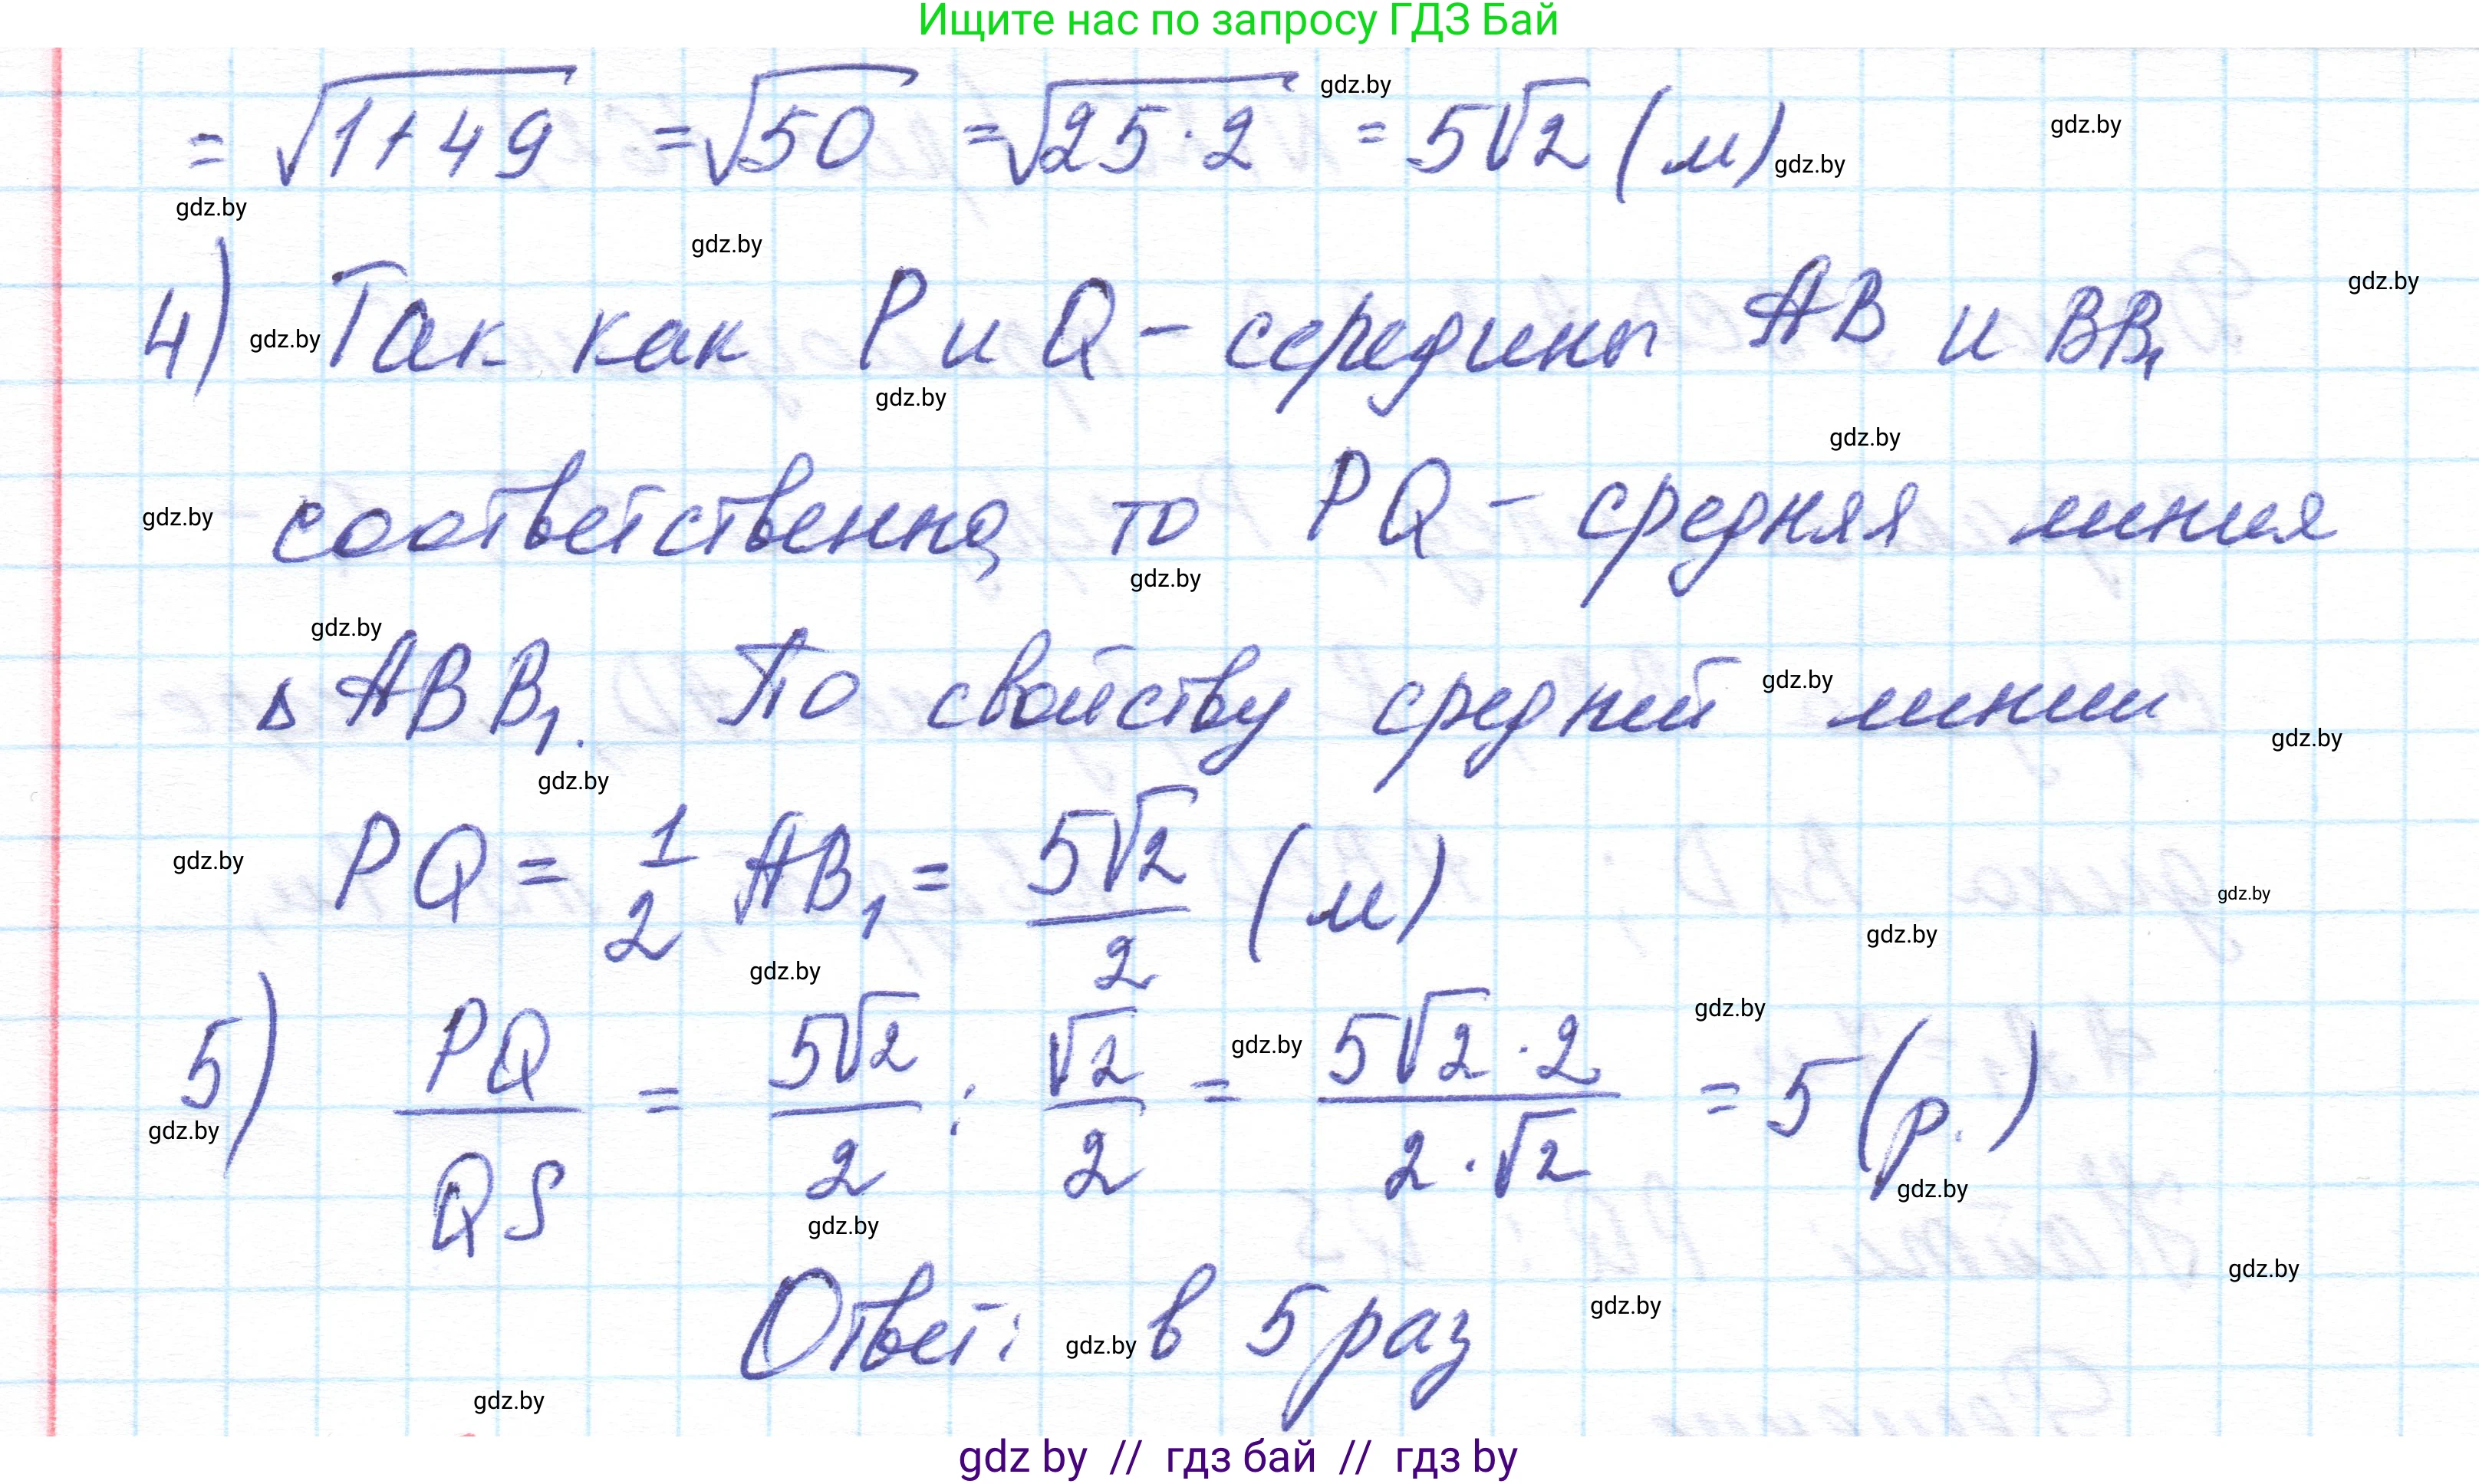 Ищите нас по запросу ГДЗ Бай
= √(1+49) = √50 = √(25·2) = 5√2 (м)
gdz.by gdz.by gdz.by gdz.by gdz.by
4) Так как P и Q - середины AB и BB₁
gdz.by gdz.by gdz.by gdz.by
соответственно, то PQ - средняя линия
gdz.by gdz.by gdz.by
△ ABB₁. По свойству средней линии
gdz.by gdz.by gdz.by gdz.by
PQ = 1/2 AB₁ = 5√2/2 (м)
gdz.by gdz.by gdz.by gdz.by
5) PQ/QS = 5√2/2 : √2/2 = 5√2·2/2·√2 = 5 (р.)
gdz.by gdz.by gdz.by gdz.by gdz.by gdz.by
Ответ: в 5 раз
gdz.by gdz.by gdz.by
gdz by // гдз бай // гдз by